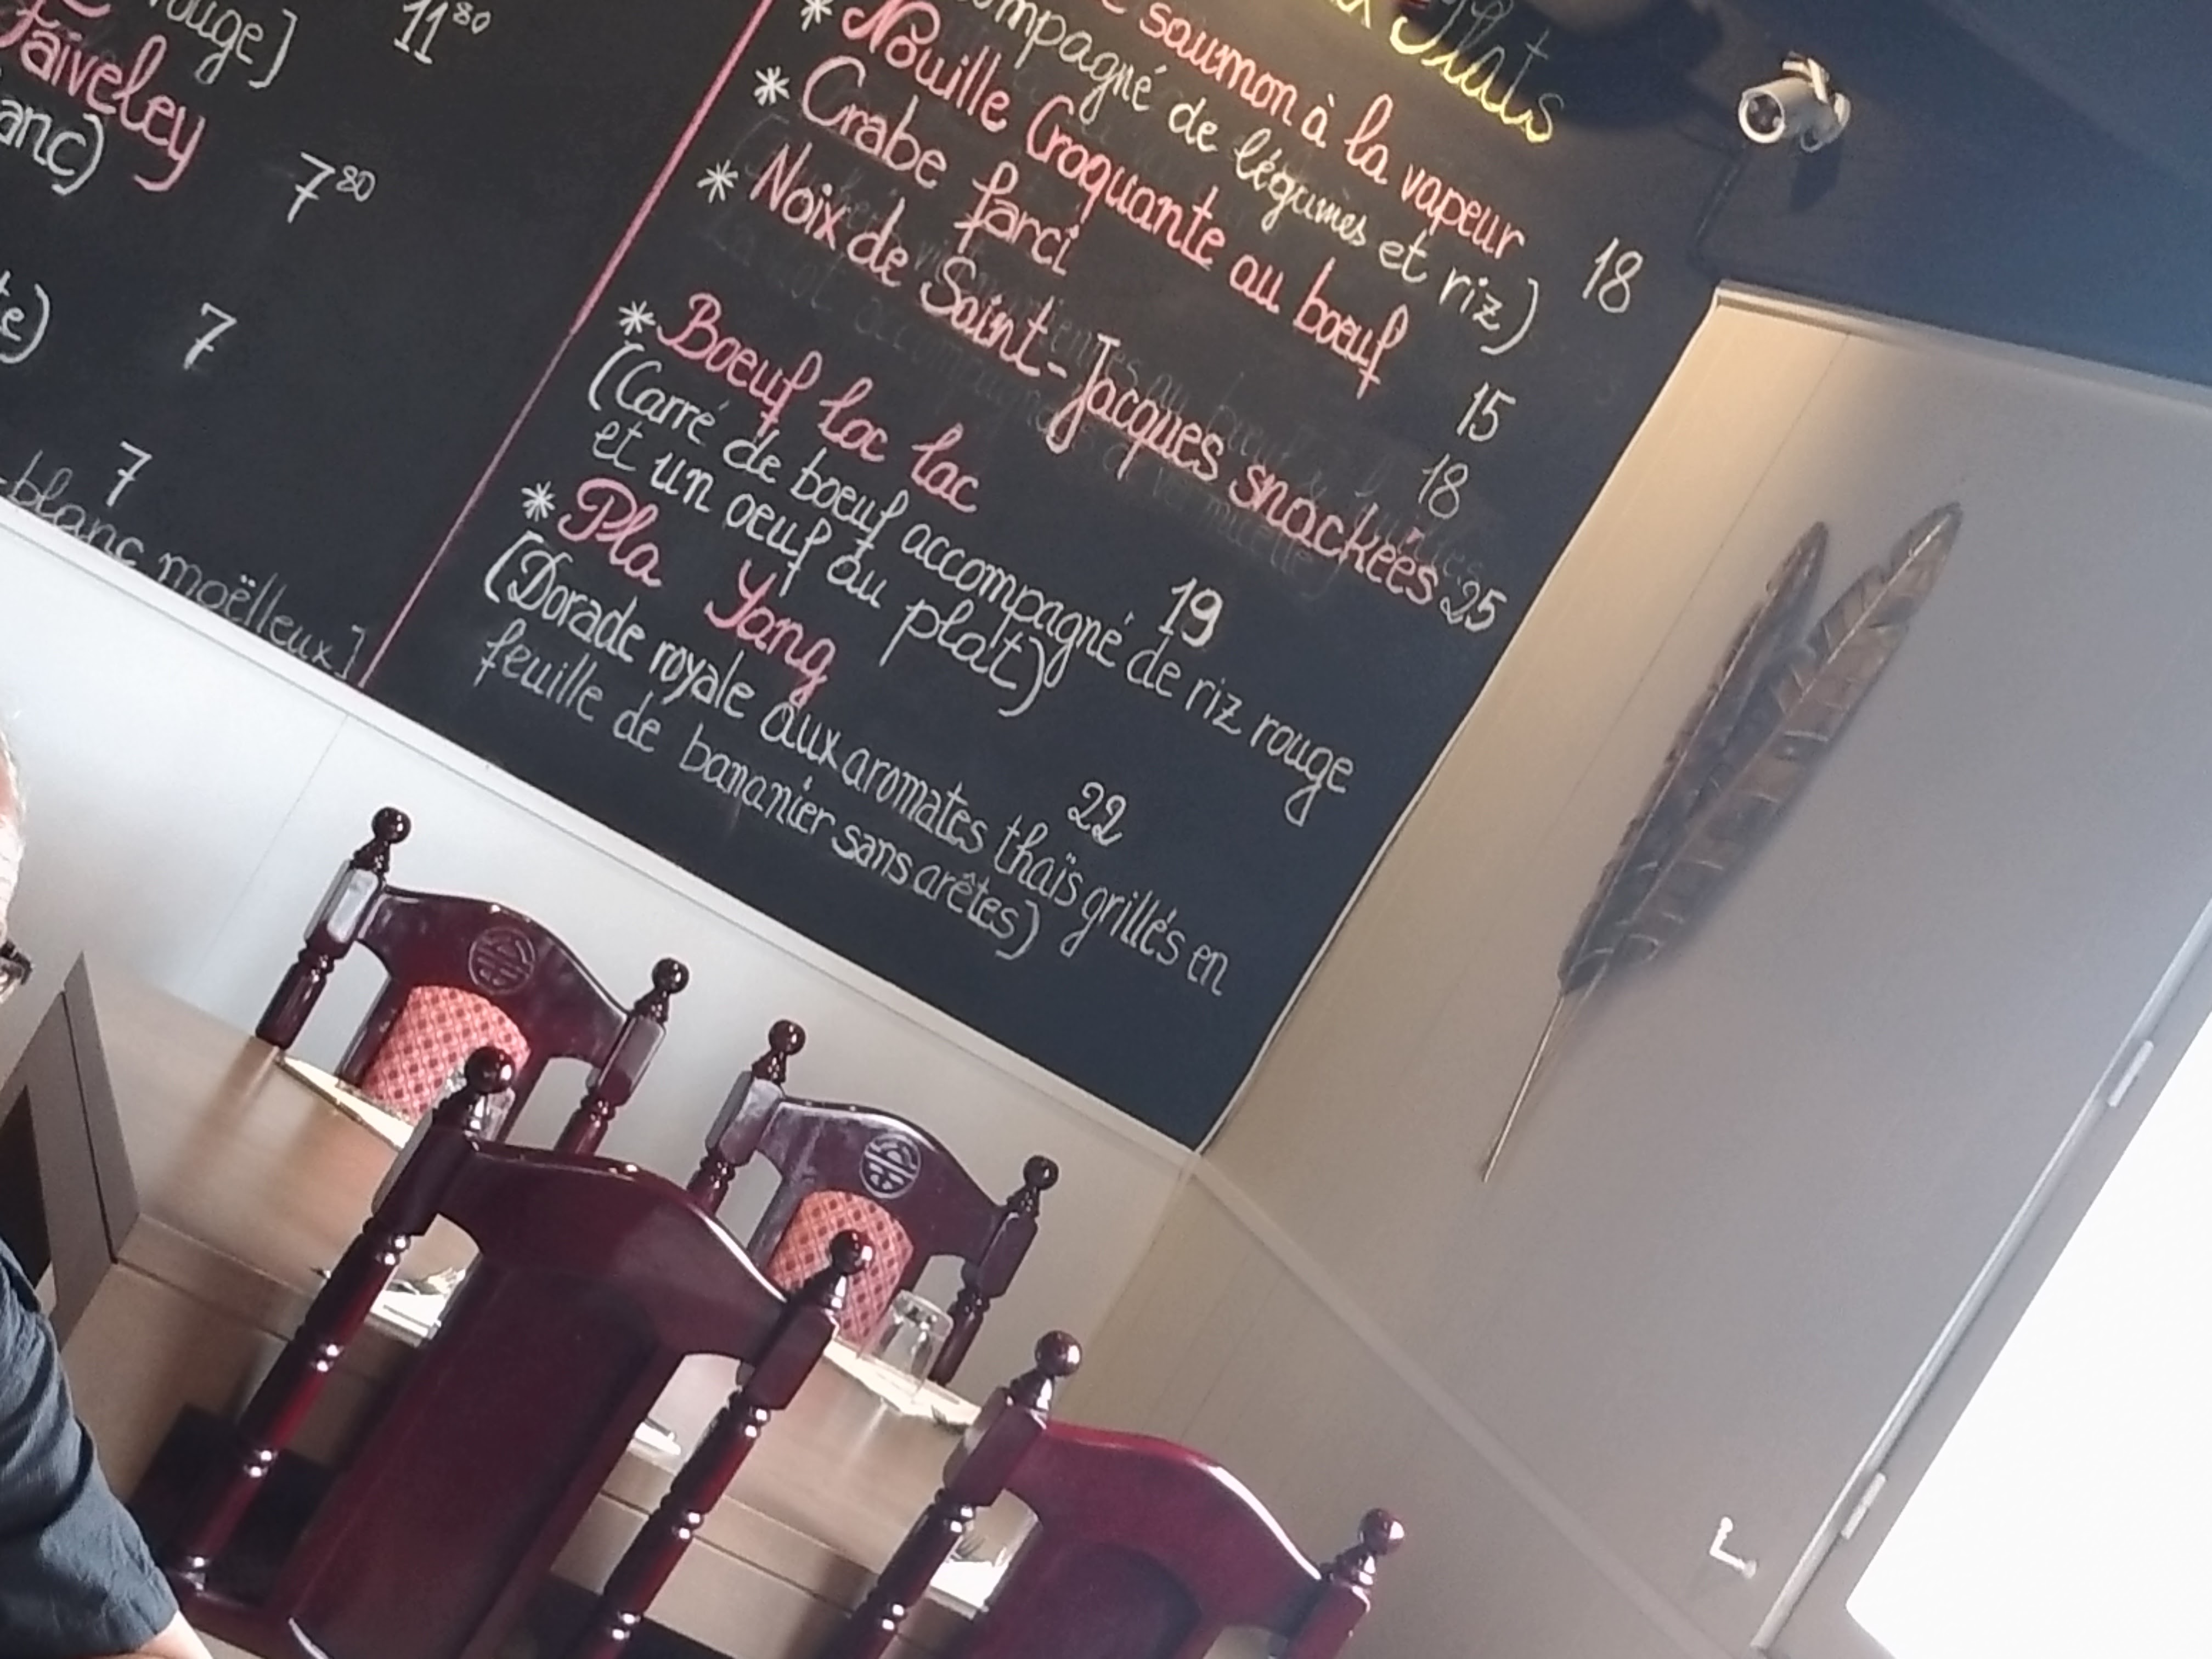 ouge] 11⁸⁰
Faiveley
anc) 7⁸⁰
te) 7
7
blanc moëlleux]
Plats
saumon à la vapeur 18
ompagné de légumes et riz)
* Nouille Croquante au bœuf 15
* Crabe farci 18
* Noix de Saint-Jacques snackées 25
* Boeuf loc lac 19
(Carré de boeuf accompagné de riz rouge
et un oeuf au plat)
* Pla Yang 22
(Dorade royale aux aromates thaïs grillés en
feuille de bananier sans arêtes)